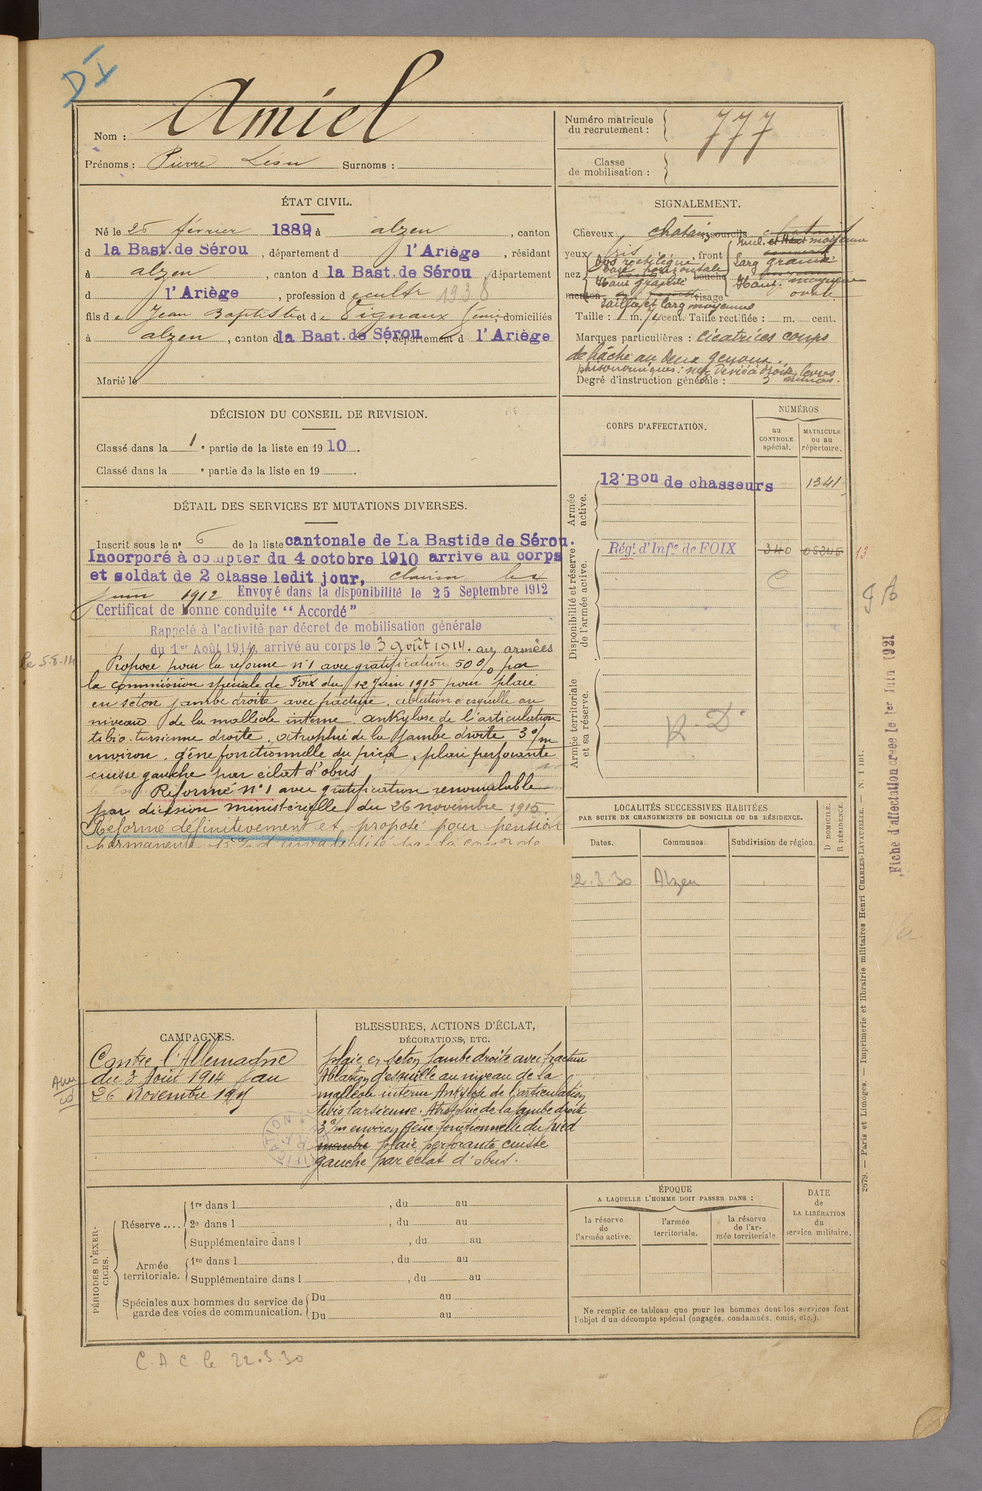 D I
Nom : Amiel
Prénoms : Pierre Léon Surnoms :
Numéro matricule
du recrutement : 777
Classe
de mobilisation :
ÉTAT CIVIL.
Né le 25 février 1889, à alzen, canton
d la Bast. de Sérou, département d l'Ariège, résidant
à alzen, canton d la Bast. de Sérou, département
d l'Ariège, profession d cultr 1938
fils d e Jean Baptiste et d e Signaux domiciliés
à alzen, canton d la Bast. de Sérou, département d l'Ariège
Marié le
SIGNALEMENT.
Cheveux chatain sourcils
yeux gris front
nez Dos rectiligne Base horizontale Haut
bouche
menton visage ovale
Taille : 1 m. cent. Taille rectifiée : m. cent.
Marques particulières : Cicatrices coups
de hâche au deux genoux.
Degré d'instruction générale : 3
DÉCISION DU CONSEIL DE REVISION.
Classé dans la 1e partie de la liste en 1910.
Classé dans la e partie de la liste en 19 .
DÉTAIL DES SERVICES ET MUTATIONS DIVERSES.
Inscrit sous le n° 6 de la liste cantonale de La Bastide de Sérou.
Incorporé à compter du 4 octobre 1910 arrive au corps
et soldat de 2 classe ledit jour, clairon le
juin 1912 Envoyé dans la disponibilité le 25 Septembre 1912
Certificat de bonne conduite "Accordé"
Rappelé à l'activité par décret de mobilisation générale
du 1er Août 1914, arrivé au corps le 3 août 1914. aux armées
le 5.8.14
Proposé pour la réforme n°1 avec gratification 50 % par
la commission spéciale de Foix du 12 Juin 1915 pour plaie
en seton jambe droite avec fracture, ablation d'esquille au
niveau de la malléole interne. ankylose de l'articulation
tibio. tarsienne droite, atrophie de la jambe droite 3 c/m
environ, gêne fonctionnelle du pied, plaie perforante
cuisse gauche par éclat d'obus
Réformé n°1 avec gratification renouvelable
par décision ministérielle du 26 novembre 1915.
Réformé définitivement et proposé pour pension
CORPS D'AFFECTATION.
NUMÉROS
au
CONTROLE
spécial.
MATRICULE
ou au
répertoire.
Armée
active.
12e Bon de chasseurs 1341
Disponibilité et réserve
de l'armée active.
Régt d'Infie de FOIX 340 13
C
Armée territoriale
et sa réserve.
R. D.
LOCALITÉS SUCCESSIVES HABITÉES
PAR SUITE DE CHANGEMENTS DE DOMICILE OU DE RÉSIDENCE.
Dates. Communes. Subdivision de région. D DOMICILE. R RÉSIDENCE.
12.3.30 Alzen
CAMPAGNES.
Contre l'Allemagne
du 3 Août 1914 au
26 Novembre 1915
BLESSURES, ACTIONS D'ÉCLAT,
DÉCORATIONS, ETC.
plaie en seton jambe droite avec fracture
Ablation d'esquille au niveau de la
malléole interne Ankylose de l'articulation
tibio tarsienne. Atrophie de la jambe droite
3 c/m environ Gêne fonctionnelle du pied
membre plaie perforante cuisse
gauche par éclat d'obus.
PÉRIODES D'EXERCICES.
Réserve .... 1re dans l , du au
2e dans l , du au
Supplémentaire dans l , du au
Armée
territoriale. 1re dans l , du au
Supplémentaire dans l , du au
Spéciales aux hommes du service de
garde des voies de communication. Du au
Du au
ÉPOQUE
A LAQUELLE L'HOMME DOIT PASSER DANS :
la réserve
de
l'armée active.
l'armée
territoriale.
la réserve
de l'ar-
mée territoriale.
DATE
de
LA LIBÉRATION
du
service militaire.
Ne remplir ce tableau que pour les hommes dont les services font
l'objet d'un décompte spécial (engagés, condamnés, omis, etc.).
Fiche d'affectation créée le 1er Juin 1921
2979. — Paris et Limoges. — Imprimerie et librairie militaires Henri CHARLES-LAVAUZELLE. — N. 1 int.
C. A C le 22.3.30